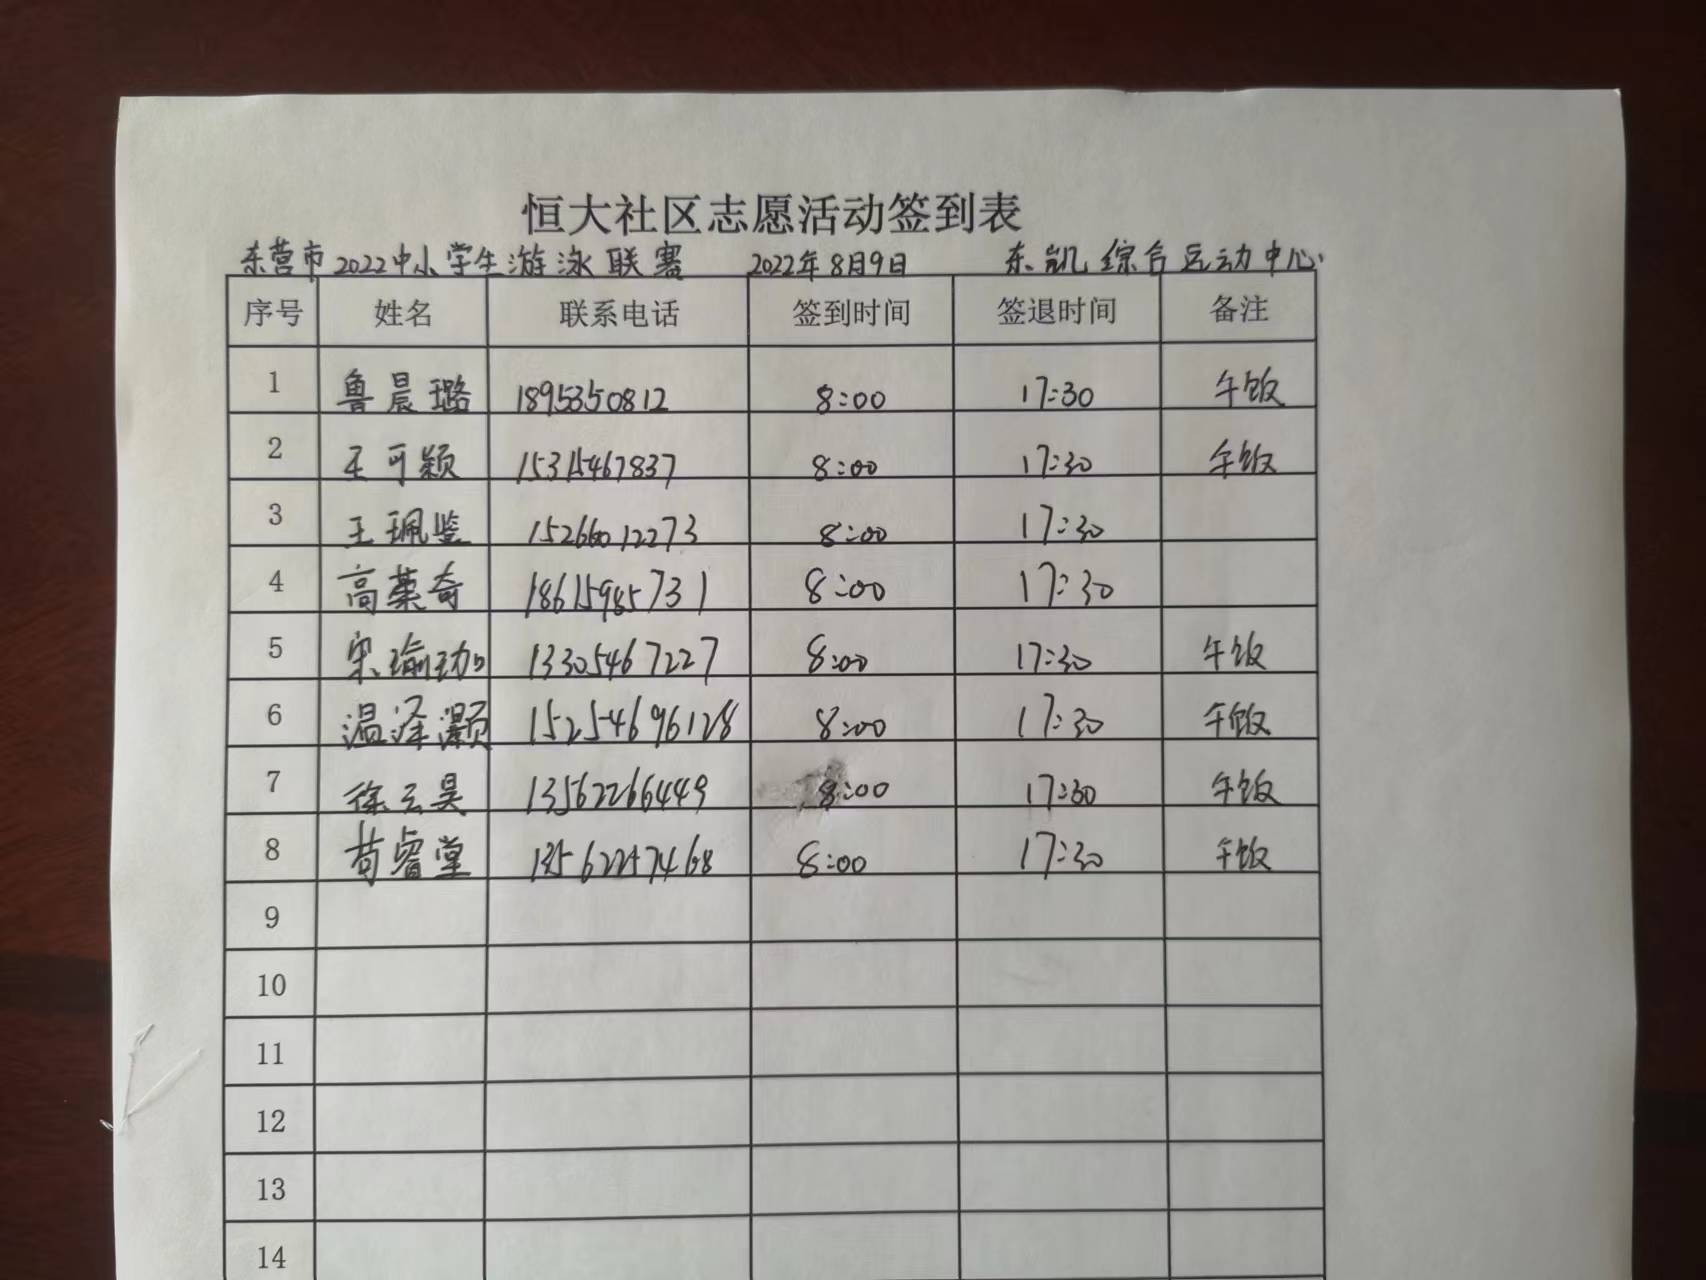 恒大社区志愿活动签到表
东营市2022中小学生游泳联赛 2022年8月9日 东凯综合运动中心
序号 姓名 联系电话 签到时间 签退时间 备注
1 鲁晨璐 1895350812 8:00 17:30 午饭
2 王可颖 15315467837 8:00 17:30 午饭
3 王珮鉴 15266012273 8:00 17:30
4 高葉奇 18615985731 8:00 17:30
5 宋瑜珈 13305467227 8:00 17:30 午饭
6 温泽灏 15254696128 8:00 17:30 午饭
7 徐云昊 13562266449 8:00 17:30 午饭
8 苟睿堂 13562257468 8:00 17:30 午饭
9
10
11
12
13
14